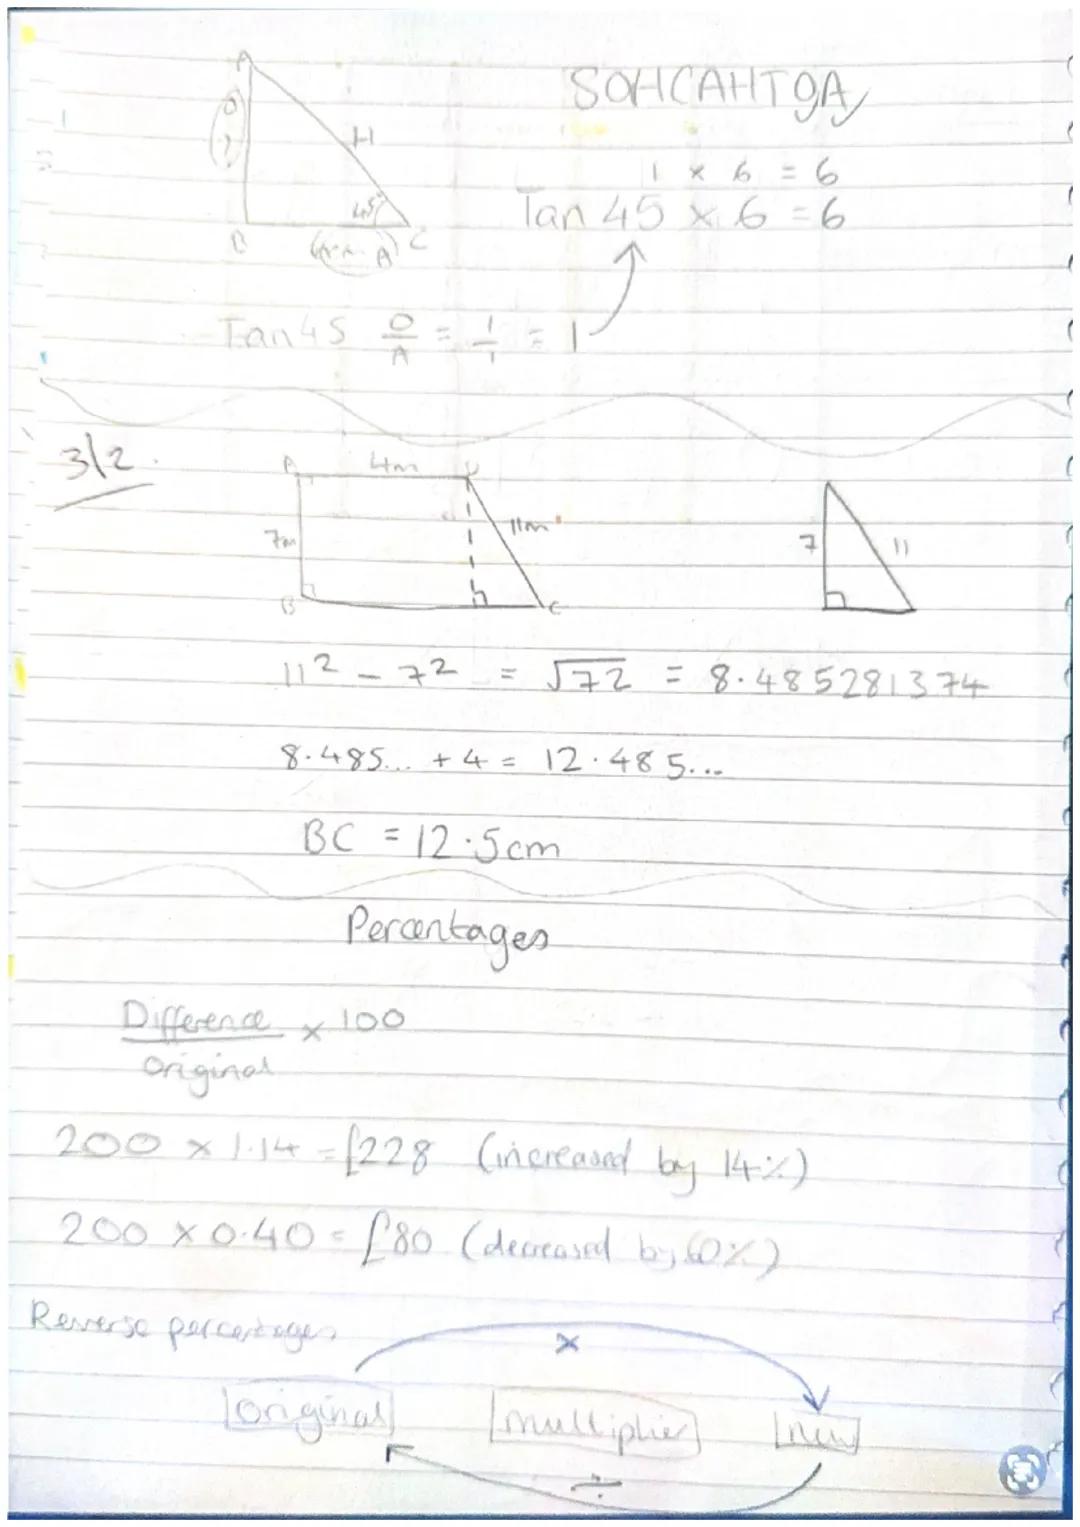 SOHCAHTOA
A
O
?
H
45°
B
A
C
1 x 6 = 6
Tan 45 x 6 = 6
Tan 45 O/A = 1/1 = 1
3/2
A 4m D
7m
11m
B
C
7
11
11² - 7² = √72 = 8.485281374
8.485... + 4 = 12.485...
BC = 12.5cm
Percentages
Difference x 100
Original
200 x 1.14 = £228 (increased by 14%)
200 x 0.40 = £80 (decreased by 60%)
Reverse percentages
x
Original multiplier new
÷